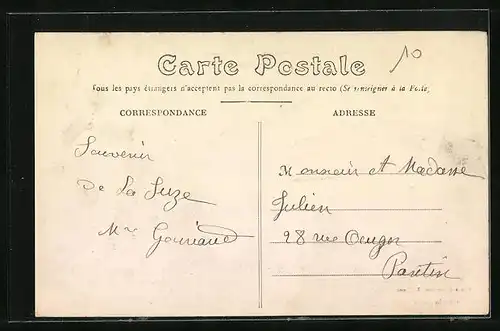 10
Carte Postale
Tous les pays étrangers n'acceptent pas la correspondance au recto (Se renseigner à la Poste)
CORRESPONDANCE
ADRESSE
Souvenir
De La Suze
Mme
Monsieur et Madame
Julien
28 rue
Pantin